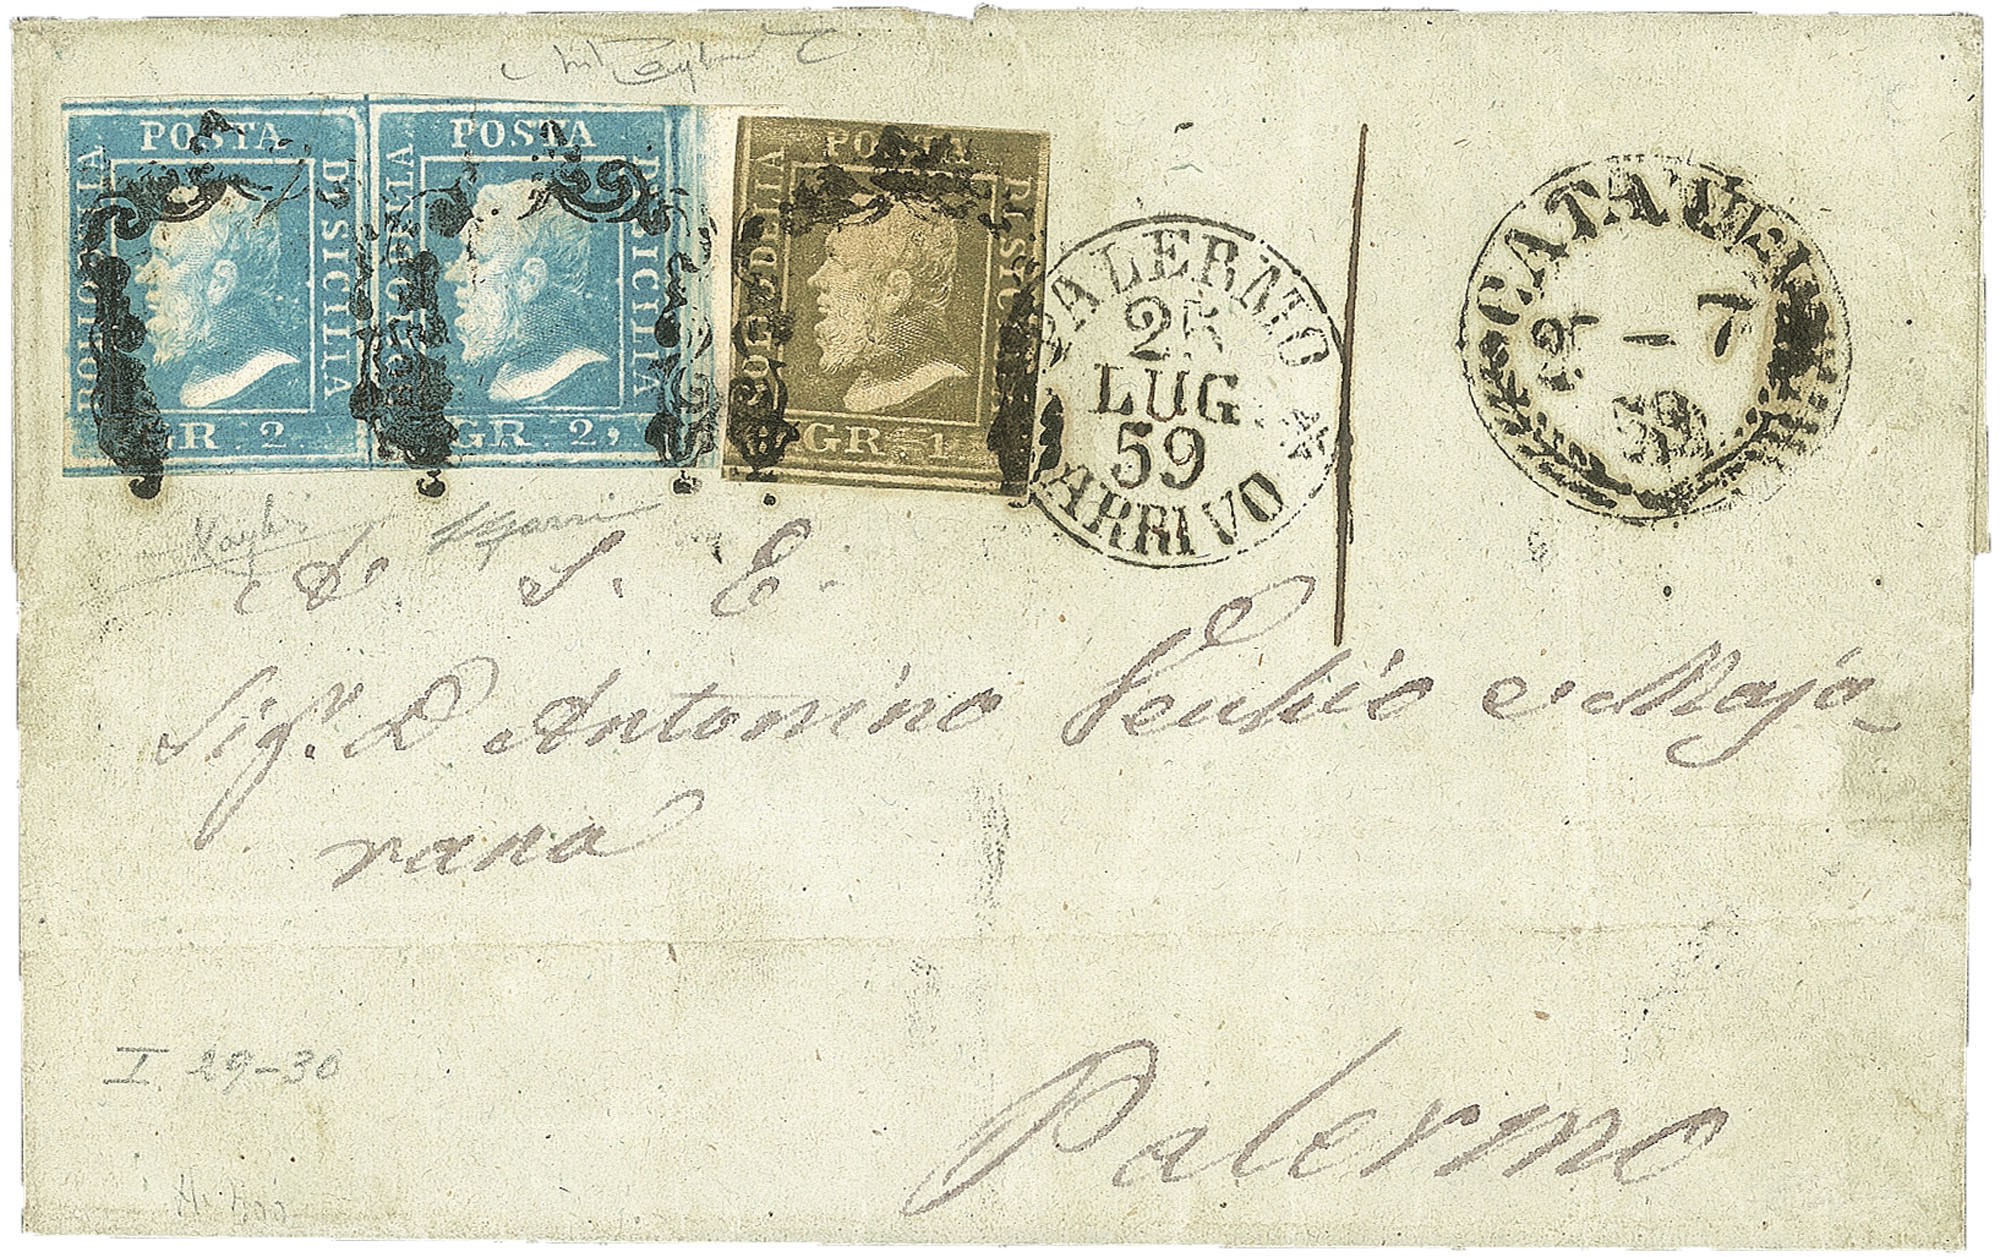 POSTA
BOLLO DELLA
DI SICILIA
GR. 2.
POSTA
BOLLO DELLA
DI SICILIA
GR. 2,
POSTA
BOLLO DELLA
DI SICILIA
GR. 1
PALERMO
LUG
59
ARRIVO
CATANIA
7
59
A S. E.
Sig.r D Antonino e Maja
rana
Palermo
I 29-30